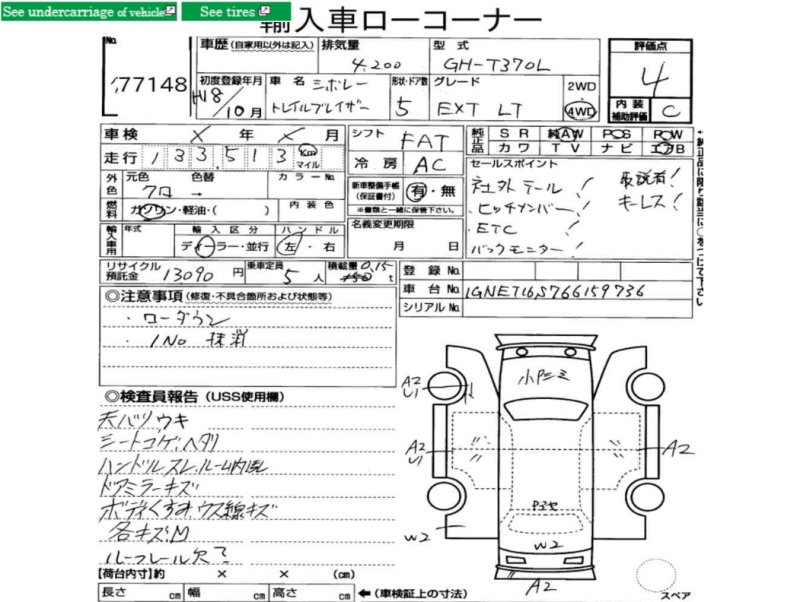 See undercarriage of vehicle
See tires
輸入車ローコーナー
No.
77148
車歴(自家用以外は記入)
排気量
4,200
型式
GH-T370L
評価点
4
内装補助評価
C
初度登録年月
H18/10月
車名
シボレー
トレイルブレイザー
形状・ドア数
5
グレード
EXT LT
2WD
4WD
車検 × 年 × 月
走行 133,513 km マイル
シフト
FAT
冷房
AC
純正品
SR 純AW PS PW
カワ TV ナビ エアB
外色
元色
クロ
色替
→
カラーNo.
燃料
ガソリン・軽油・( )
内装色
新車整備手帳(保証書付)
有・無
※書類と一緒に保管下さい。
セールスポイント
社外テール!
取説有!
ヒッチメンバー!
キーレス!
ETC!
バックモニター!
輸入車用
年式
輸入区分
ディーラー・並行
ハンドル
左・右
名義変更期限
月 日
リサイクル預託金
13090円
乗車定員
5人
積載量
0.15
t
登録No.
車台No.
1GNET16S766159736
シリアルNo.
◎注意事項(修復・不具合箇所および状態等)
・ローダウン
・1No 抹消
◎検査員報告(USS使用欄)
天バリウキ
シートコゲ、ヘタリ
ハンドルスレ、ルーム内傷
ドアミラーキズ
ボディくすみ、ウス線キズ
各キズ、M
ルーフレール欠?
【荷台内寸】約 × × (cm)
長さ cm 幅 cm 高さ cm
←(車検証上の寸法)
A2
U1
A2
U1
A2
W2
W2
A2
スペア